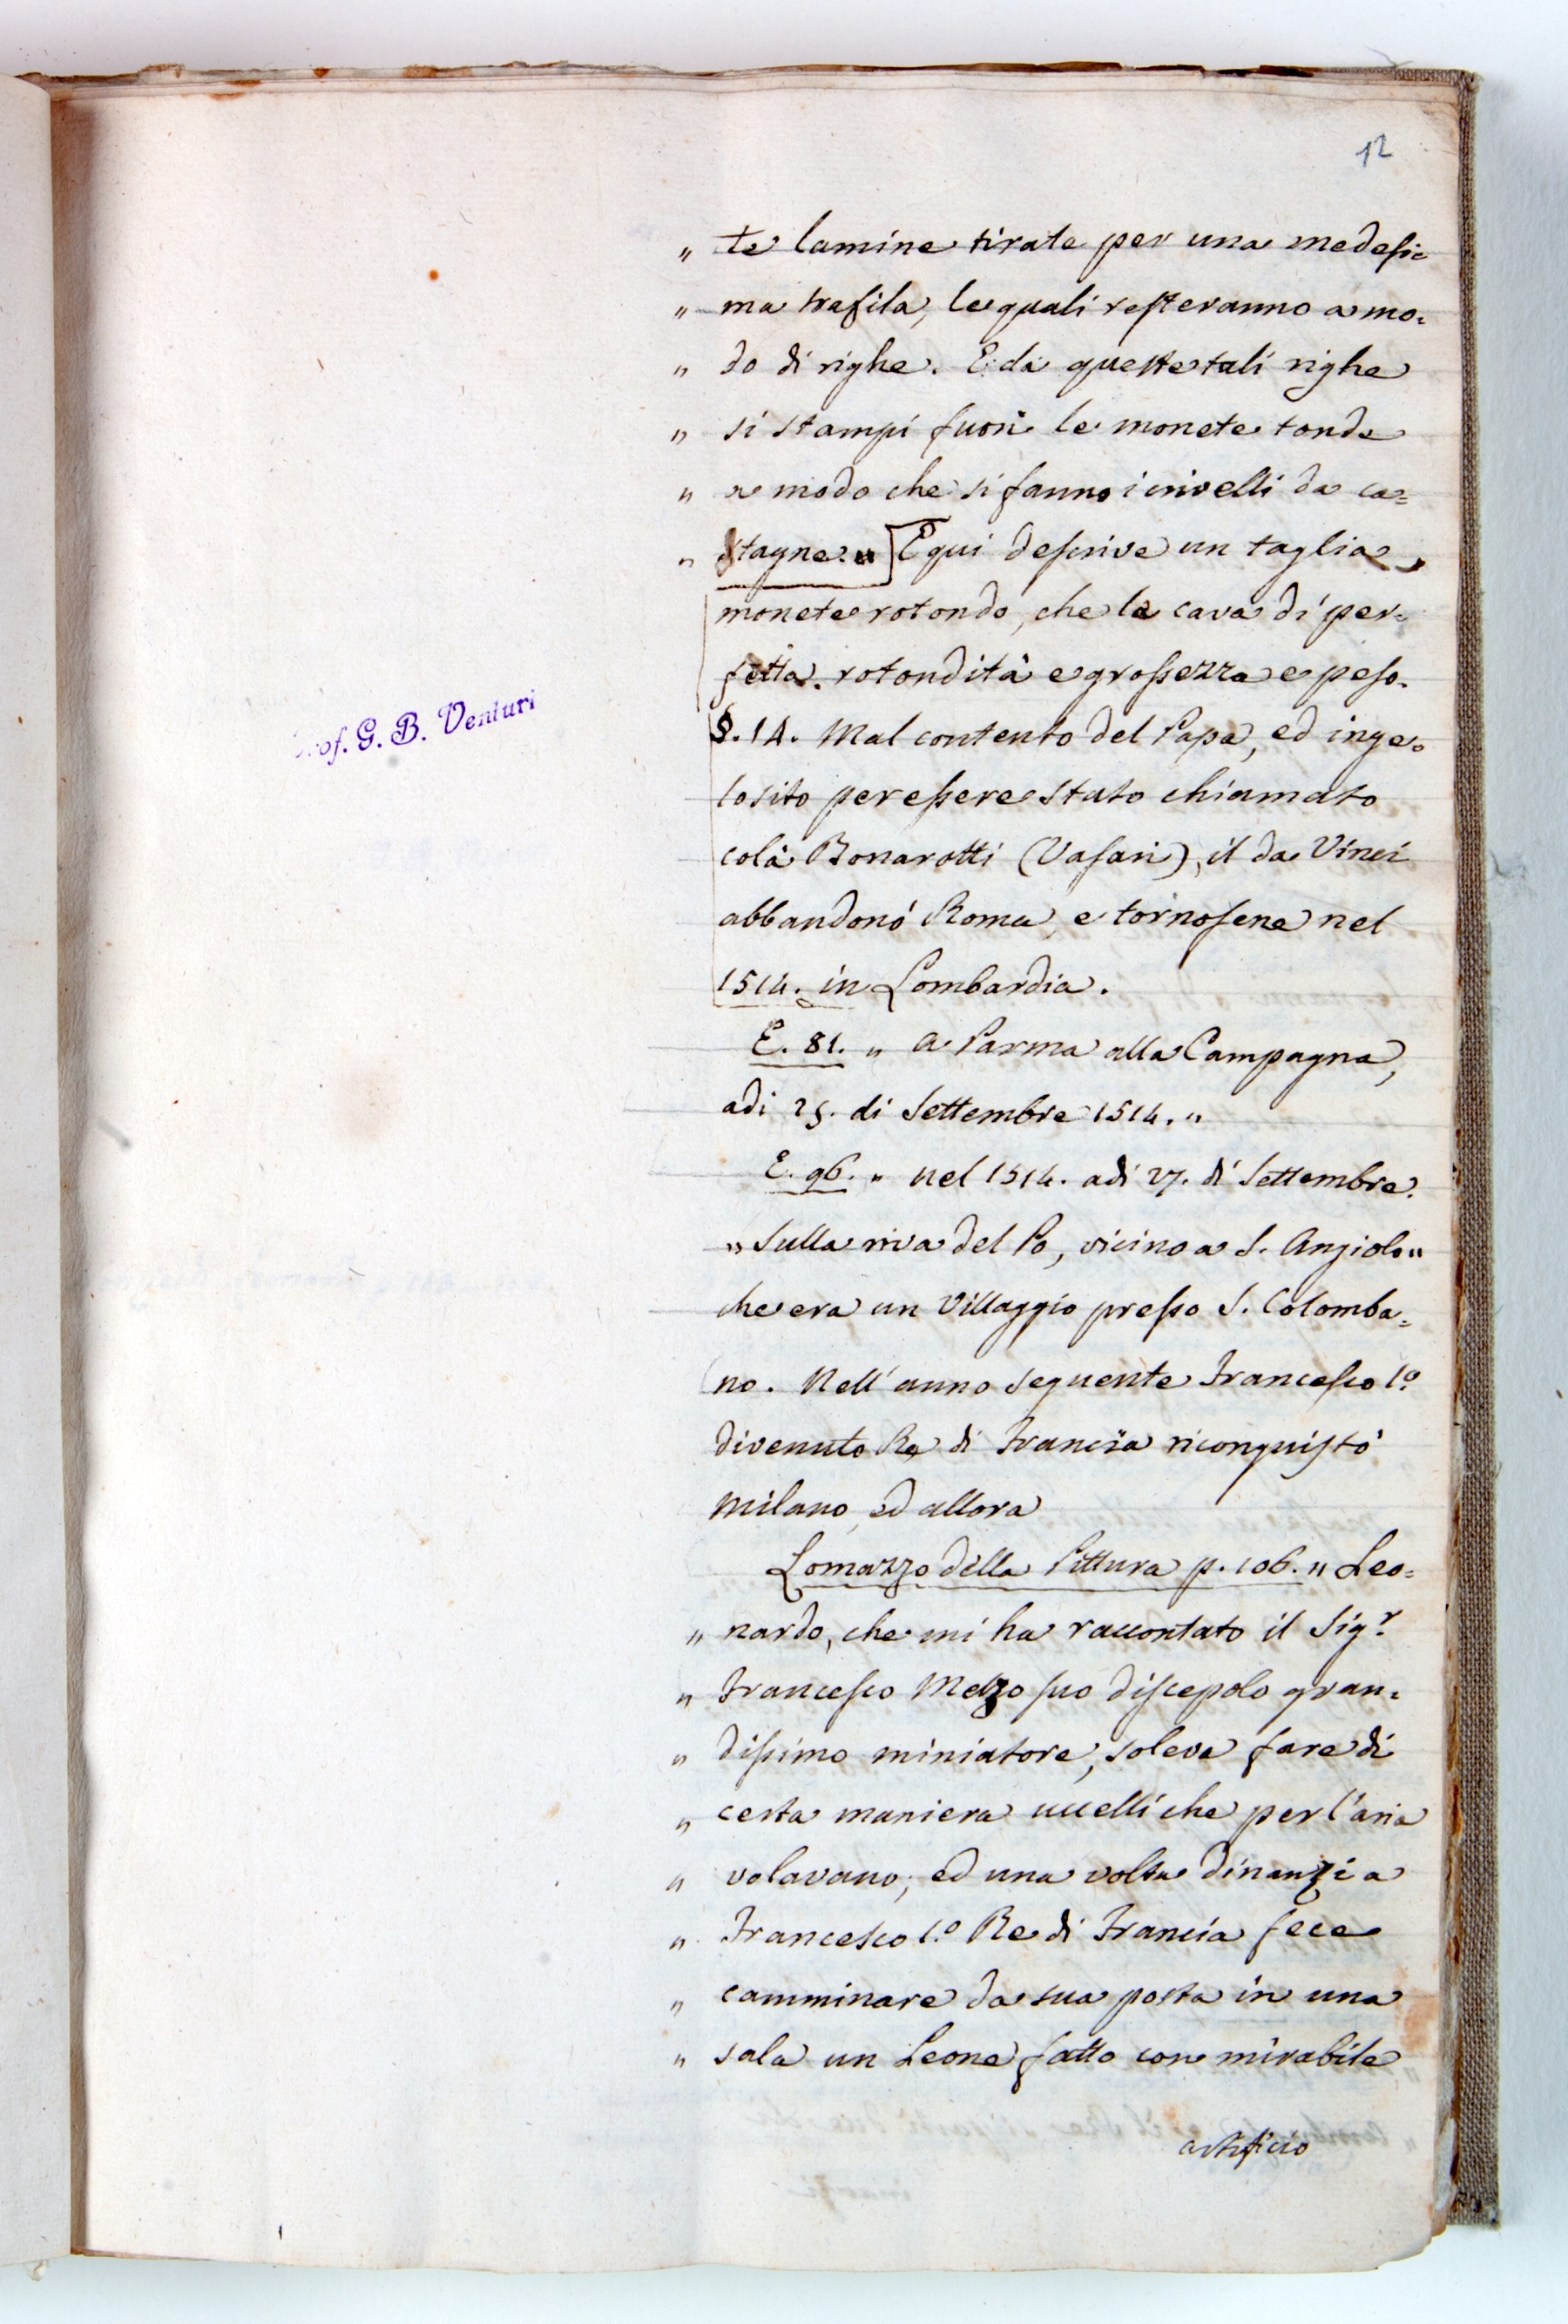 12
„ te lamine tirate per una medesi=
„ ma trafila, le quali resteranno a mo=
„ do di righe. E da queste tali righe
„ si stampi fuori le monete tonde
„ a modo che si fanno i crivelli da ca=
„ stagne. „ E qui descrive un taglia
monete rotondo, che le cava di per=
fetta rotondità e grossezza e peso.
§. 14. Mal contento del Papa, ed inge=
losito per essere stato chiamato
colà Bonarotti (Vasari), il da Vinci
abbandonò Roma, e tornosene nel
1514. in Lombardia.
E. 81. „ a Parma alla Campagna,
adi 25. di Settembre 1514. „
E. 96. „ nel 1514. adi 27. di Settembre.
„ Sulla riva del Po, vicino a S. Angiolo „
che era un Villaggio presso S. Colomba=
no. Nell' anno seguente Francesco 1.º
divenuto Re di Francia riconquistò
Milano, ed allora
Lomazzo della Pittura p. 106. „ Leo=
„ nardo, che mi ha raccontato il Sig.r
„ Francesco Melzo suo discepolo gran=
„ dissimo miniatore, soleva fare di
„ certa maniera uccelli che per l'aria
„ volavano; ed una volta dinanzi a
„ Francesco 1.º Re di Francia fece
„ camminare da sua posta in una
„ sala un Leone fatto con mirabile
artificio
Prof. G. B. Venturi